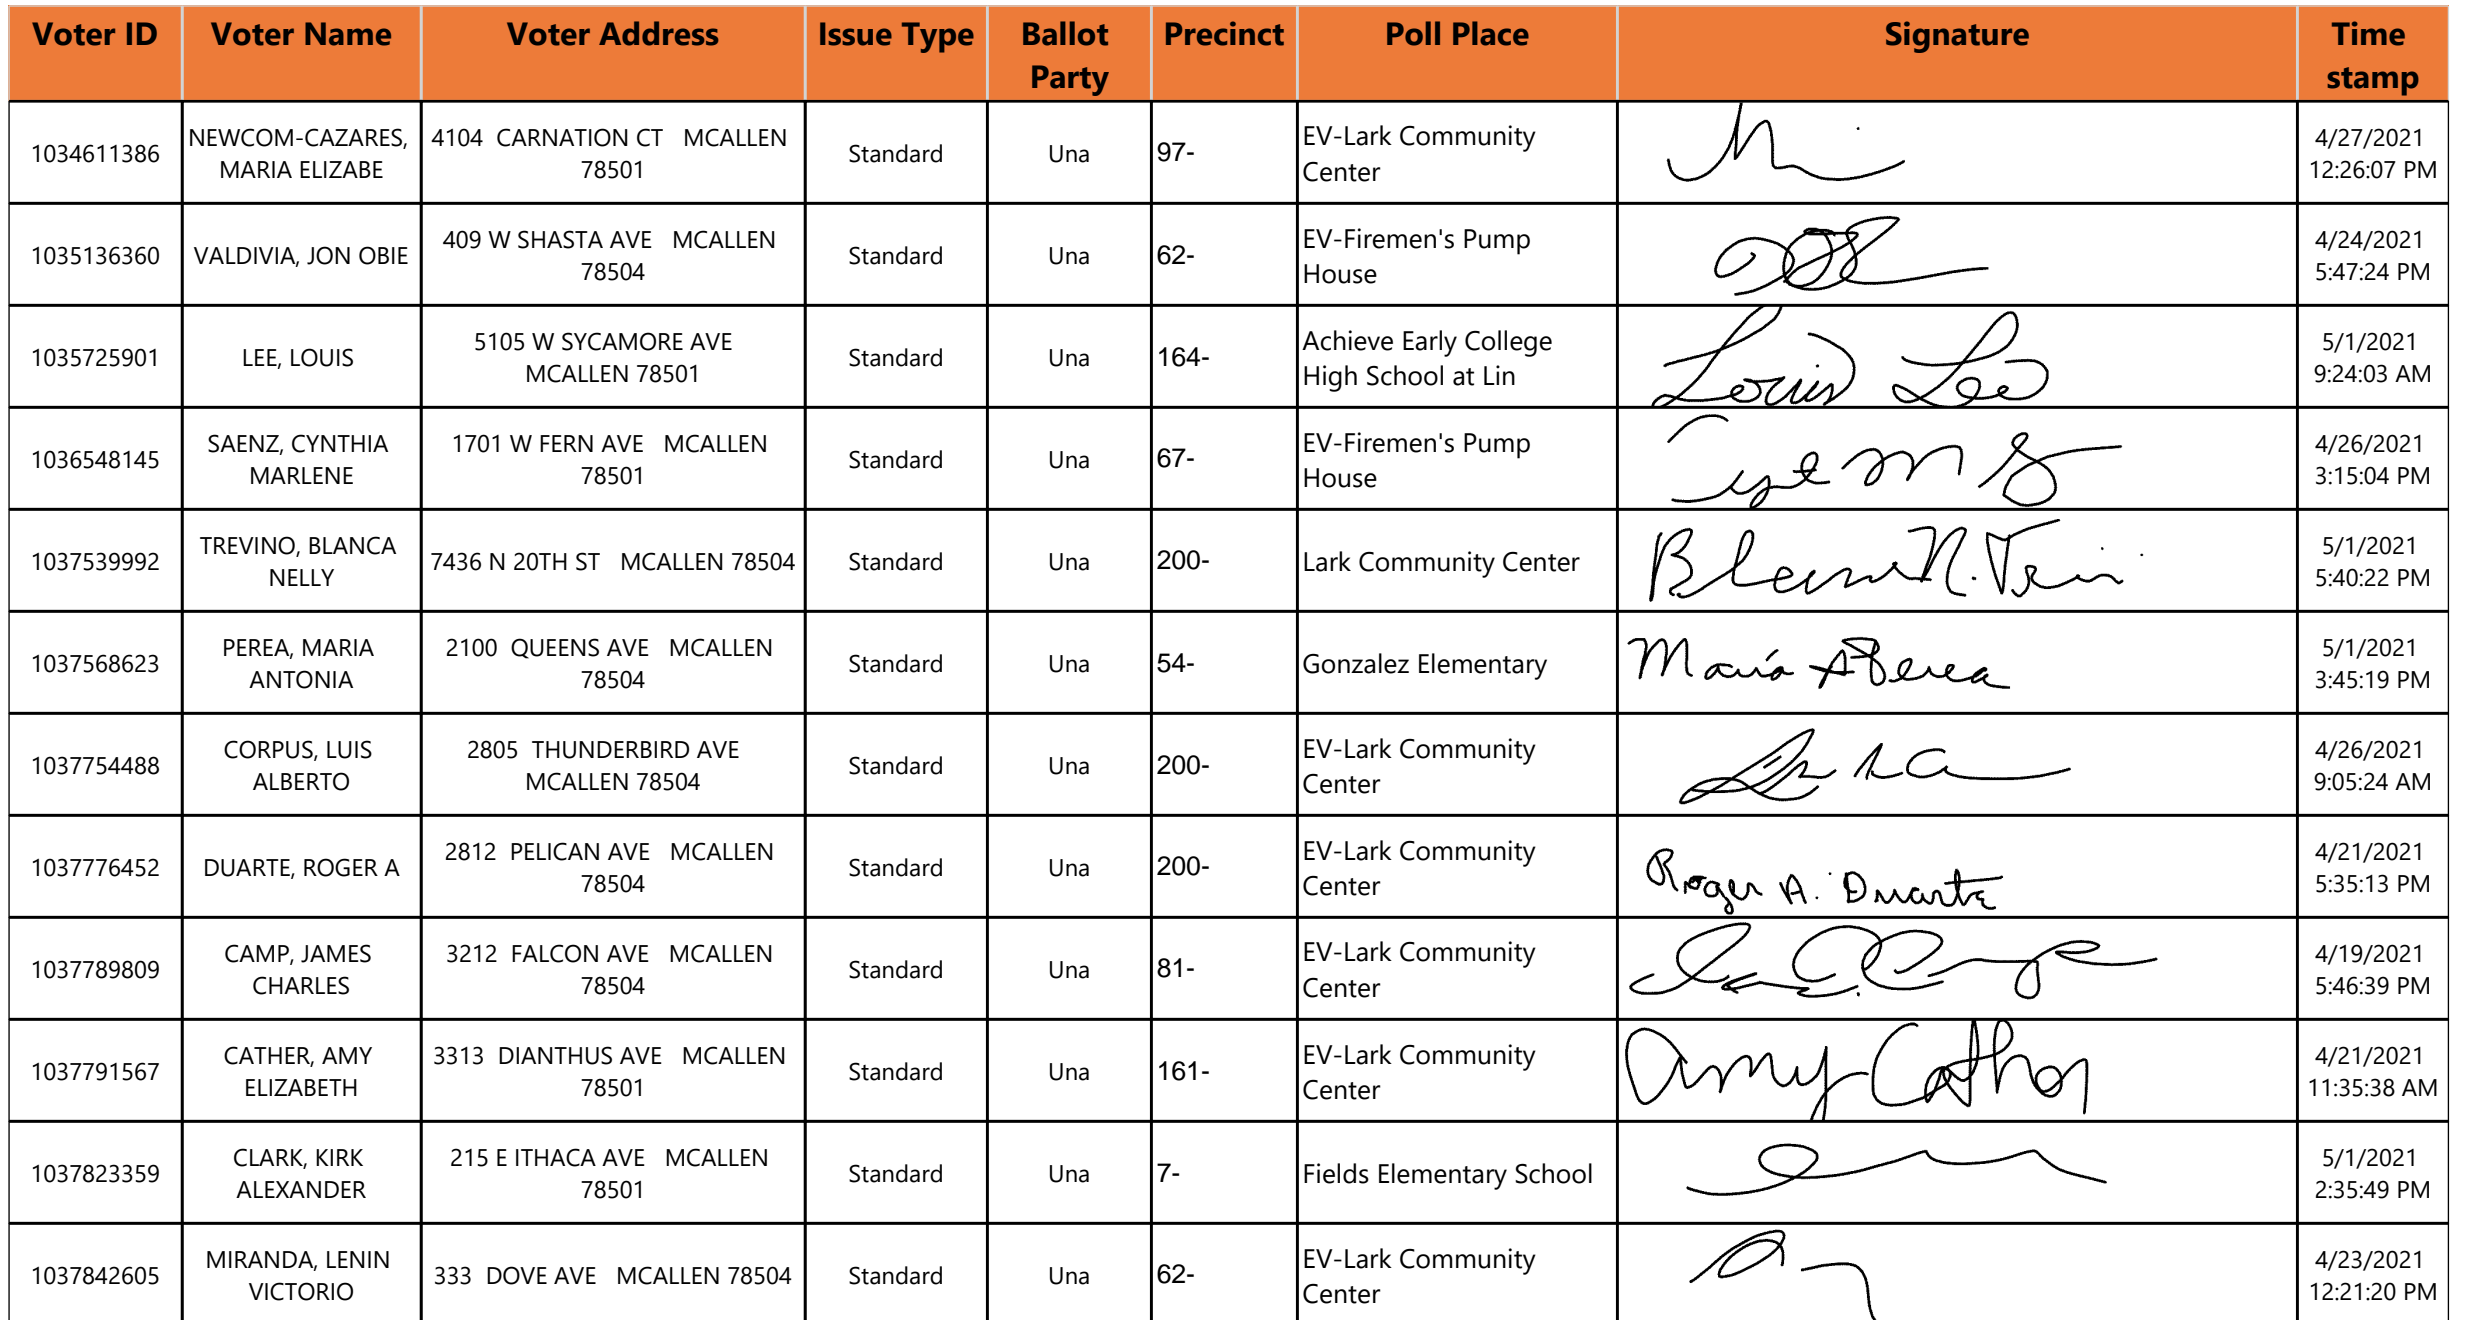 Voter ID Voter Name Voter Address Issue Type Ballot Party Precinct Poll Place Signature Time stamp
1034611386 NEWCOM-CAZARES, MARIA ELIZABE 4104 CARNATION CT MCALLEN 78501 Standard Una 97- EV-Lark Community Center 4/27/2021 12:26:07 PM
1035136360 VALDIVIA, JON OBIE 409 W SHASTA AVE MCALLEN 78504 Standard Una 62- EV-Firemen's Pump House 4/24/2021 5:47:24 PM
1035725901 LEE, LOUIS 5105 W SYCAMORE AVE MCALLEN 78501 Standard Una 164- Achieve Early College High School at Lin Louis Lee 5/1/2021 9:24:03 AM
1036548145 SAENZ, CYNTHIA MARLENE 1701 W FERN AVE MCALLEN 78501 Standard Una 67- EV-Firemen's Pump House 4/26/2021 3:15:04 PM
1037539992 TREVINO, BLANCA NELLY 7436 N 20TH ST MCALLEN 78504 Standard Una 200- Lark Community Center 5/1/2021 5:40:22 PM
1037568623 PEREA, MARIA ANTONIA 2100 QUEENS AVE MCALLEN 78504 Standard Una 54- Gonzalez Elementary María A Perea 5/1/2021 3:45:19 PM
1037754488 CORPUS, LUIS ALBERTO 2805 THUNDERBIRD AVE MCALLEN 78504 Standard Una 200- EV-Lark Community Center 4/26/2021 9:05:24 AM
1037776452 DUARTE, ROGER A 2812 PELICAN AVE MCALLEN 78504 Standard Una 200- EV-Lark Community Center Roger A. Duarte 4/21/2021 5:35:13 PM
1037789809 CAMP, JAMES CHARLES 3212 FALCON AVE MCALLEN 78504 Standard Una 81- EV-Lark Community Center 4/19/2021 5:46:39 PM
1037791567 CATHER, AMY ELIZABETH 3313 DIANTHUS AVE MCALLEN 78501 Standard Una 161- EV-Lark Community Center Amy Cather 4/21/2021 11:35:38 AM
1037823359 CLARK, KIRK ALEXANDER 215 E ITHACA AVE MCALLEN 78501 Standard Una 7- Fields Elementary School 5/1/2021 2:35:49 PM
1037842605 MIRANDA, LENIN VICTORIO 333 DOVE AVE MCALLEN 78504 Standard Una 62- EV-Lark Community Center 4/23/2021 12:21:20 PM